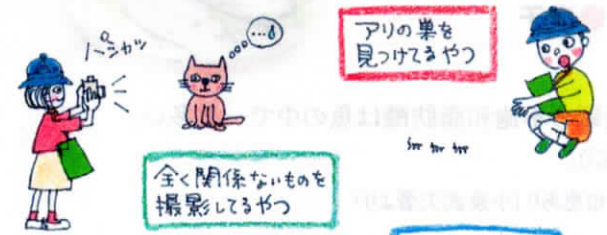 パシャッ
アリの巣を
見つけてるやつ
全く関係ないものを
撮影してるやつ